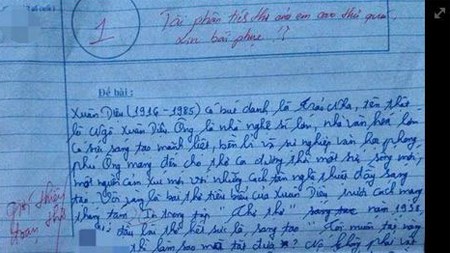 1
Tài phân tích thơ của em cao thủ quá,
xin bái phục !?
Đề bài:
Xuân Diệu (1916 - 1985) có bút danh là Trảo Nha, tên thật
là Ngô Xuân Diệu. Ông là nhà nghệ sĩ lớn, nhà văn hóa lớn
có sức sáng tạo mãnh liệt, bền bỉ và sự nghiệp văn học phong
phú. Ông mang đến cho thơ ca đương thời một sức sống mới,
một nguồn cảm xúc mới với những cách tân nghệ thuật đầy sáng
tạo. Vội vàng là bài thơ tiêu biểu của Xuân Diệu trước cách mạng
tháng tám. In trong tập "Thơ thơ" sáng tác năm 1938,
đầu bài thơ hết sức là sáng tạo "Tôi muốn tắt nắng
thì làm sao mà tắt được? Nó không phải
Giới thiệu